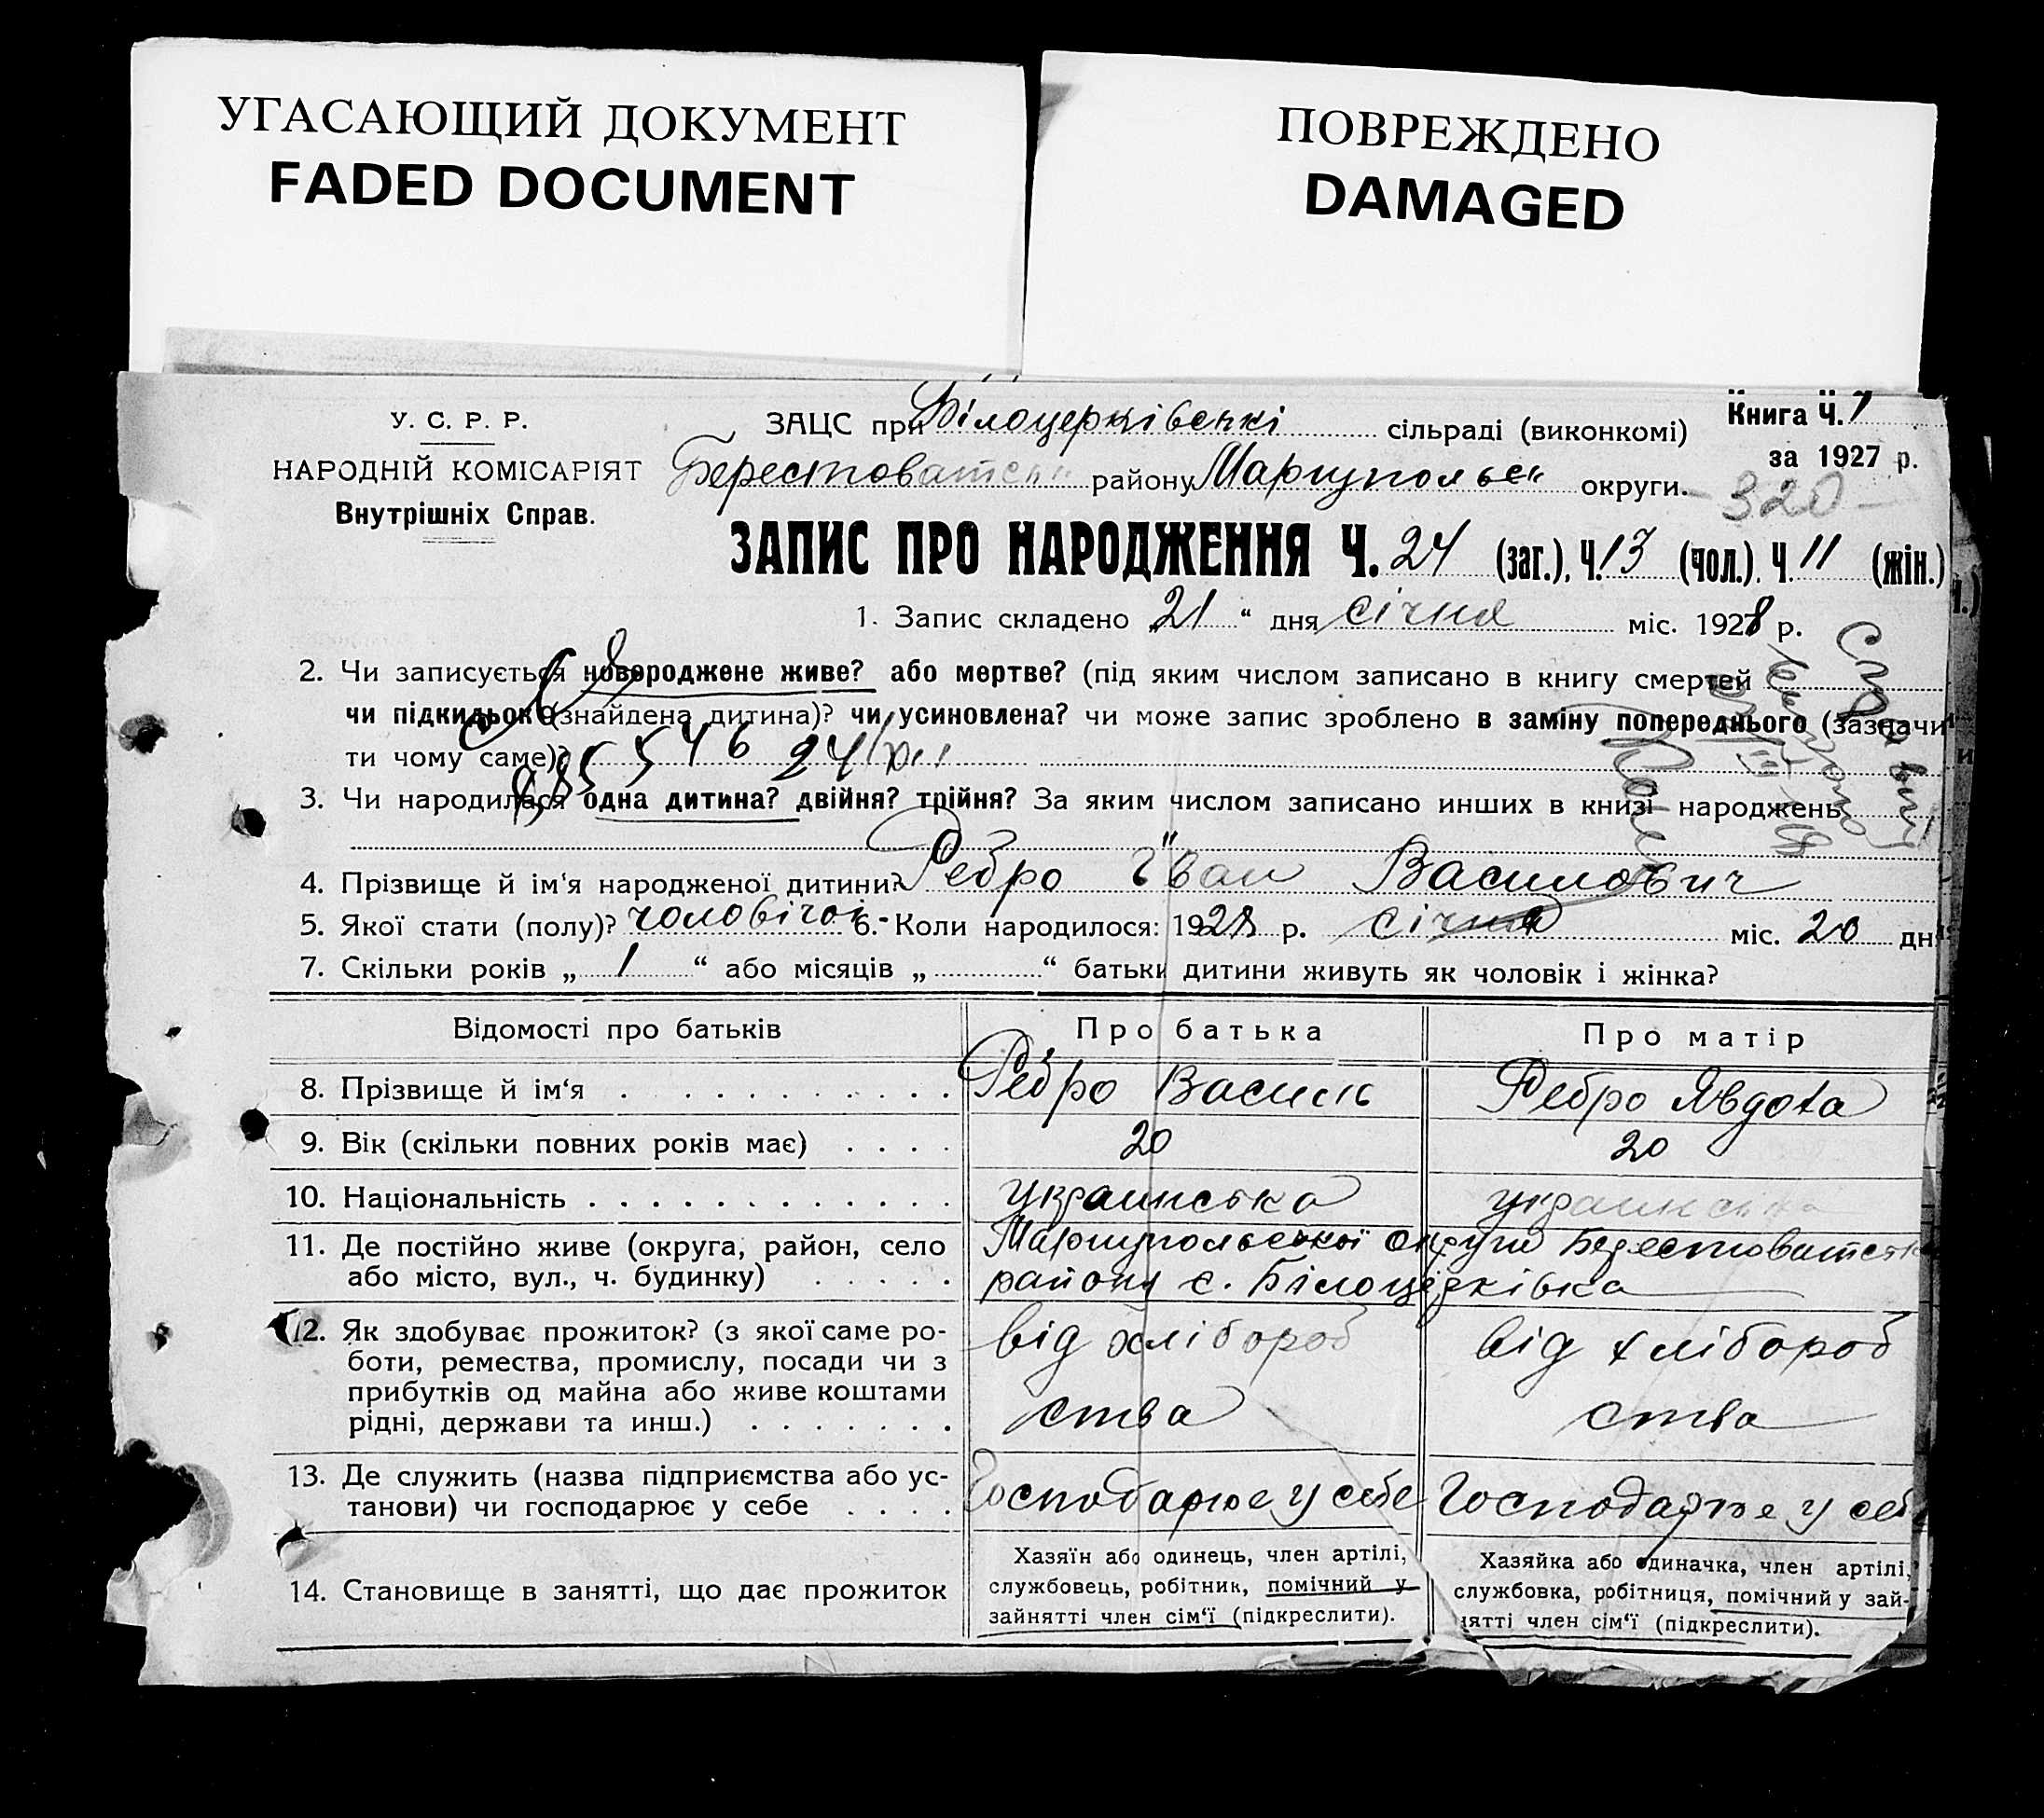 УГАСАЮЩИЙ ДОКУМЕНТ
FADED DOCUMENT
ПОВРЕЖДЕНО
DAMAGED
У. С. Р. Р.
НАРОДНІЙ КОМІСАРІЯТ
Внутрішніх Справ.
ЗАЦС при Білоцерківські сільраді (виконкомі)
Берестоватськ району Маріупольськ округи.
Книга Ч. 1
за 1927 р.
320
ЗАПИС ПРО НАРОДЖЕННЯ Ч. 24 (заг.), Ч. 13 (чол.). Ч. 11 (жін.)
1. Запис складено „21“ дня січня міс. 1928 р.
2. Чи записується новороджене живе? або мертве? (під яким числом записано в книгу смертей
чи підкидьок (знайдена дитина)? чи усиновлена? чи може запис зроблено в заміну попереднього (зазначи
ти чому саме)?
24/XII
3. Чи народилася одна дитина? двійня? трійня? За яким числом записано инших в книзі народжень
4. Прізвище й ім‘я народженої дитини? Ребро Іван Василович
5. Якої стати (полу)? чоловічої 6. Коли народилося: 1928 р. січня міс. 20 дн
7. Скільки років „ 1 “ або місяців „ “ батьки дитини живуть як чоловік і жінка?
Відомості про батьків Про батька Про матір
8. Прізвище й ім‘я Ребро Василь Ребро Явдоха
9. Вік (скільки повних років має) 20 20
10. Національність украинська украинська
11. Де постійно живе (округа, район, село Маріупольської округи Берестоватськ
або місто, вул., ч. будинку) району с. Білоцерківка
12. Як здобуває прожиток? (з якої саме ро- від хлібороб від хлібороб
боти, ремества, промислу, посади чи з
прибутків од майна або живе коштами ства ства
рідні, держави та инш.)
13. Де служить (назва підприємства або ус-
танови) чи господарює у себе Господарює у себе Господарює у себ
Хазяїн або одинець, член артілі, Хазяйка або одиначка, член артілі,
14. Становище в занятті, що дає прожиток службовець, робітник, помічний у службовка, робітниця, помічний у зай-
зайнятті член сім‘ї (підкреслити). нятті член сім‘ї (підкреслити).